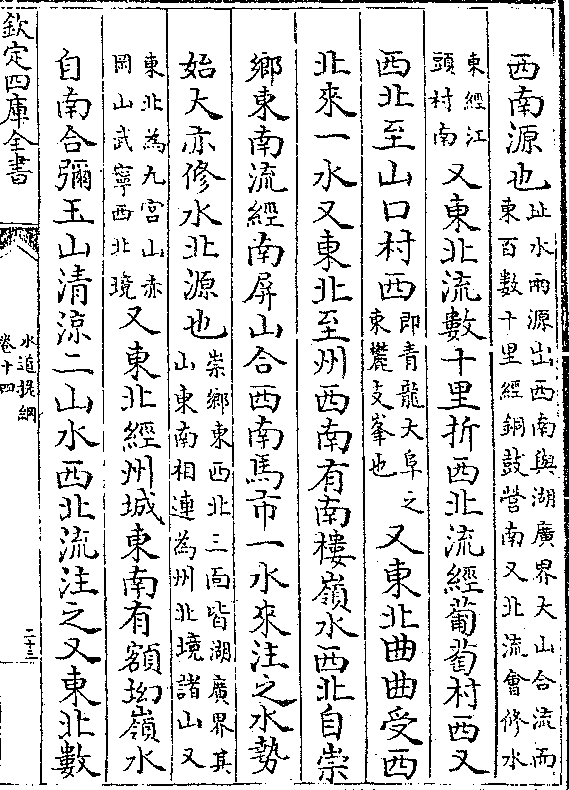 西南源也
址水兩源出西南與湖廣界大山合流而
東百數十里經銅鼓營南又北流會修水
東經江
頭村南
又東北流數十里折西北流經葡萄村西又
西北至山口村西
即青龍大阜之
東麓支峯也
又東北曲曲受西
北來一水又東北至州西南有南樓嶺水西北自崇
鄉東南流經南屏山合西南馬市一水來注之水勢
始大亦修水北源也
崇鄉東西北三面皆湖廣界其
山東南相連為州北境諸山又
東北為九宮山赤
岡山武寧西北境
又東北經州城東南有額坳嶺水
自南合彌王山清涼二山水西北流注之又東北數
欽定四庫全書
水道提綱
卷十四
二十三